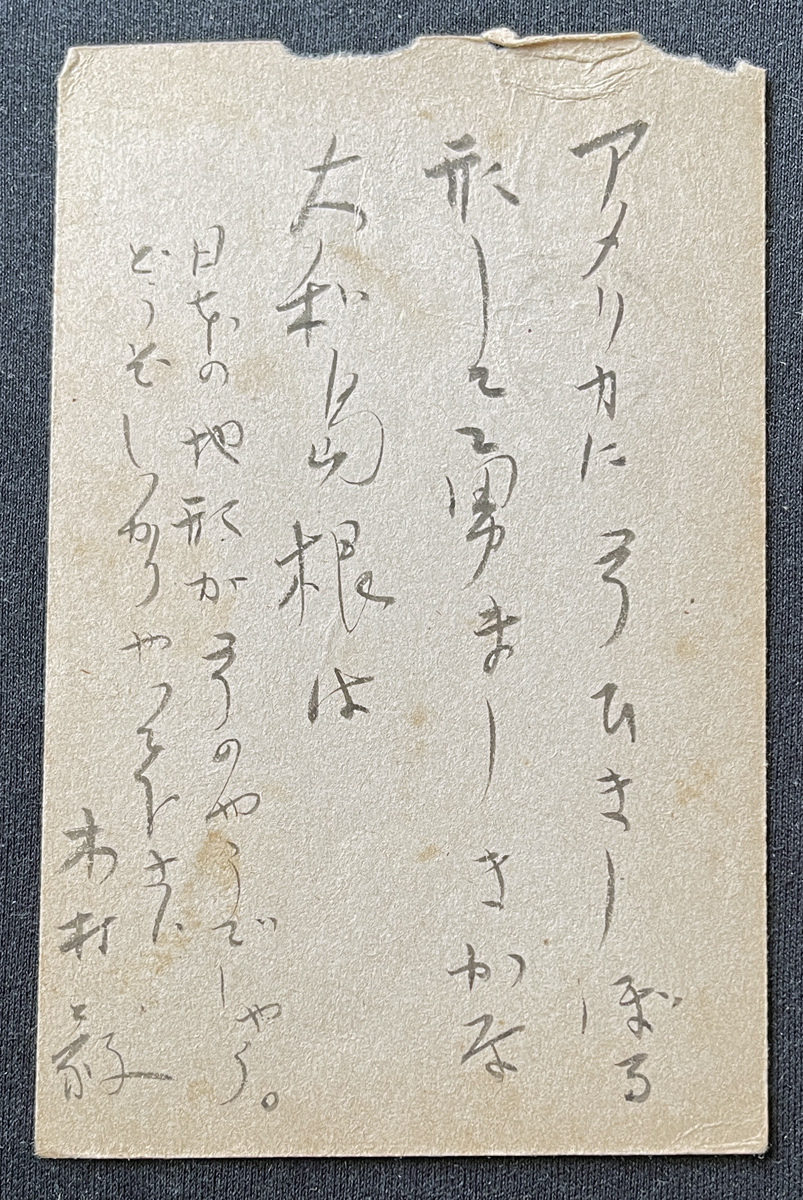 アメリカに弓ひきしぼる
形して勇ましきかな
大和島根は
日本の地形が弓のやうでしやう。
どうぞしつかりやつて下さい
木村毅